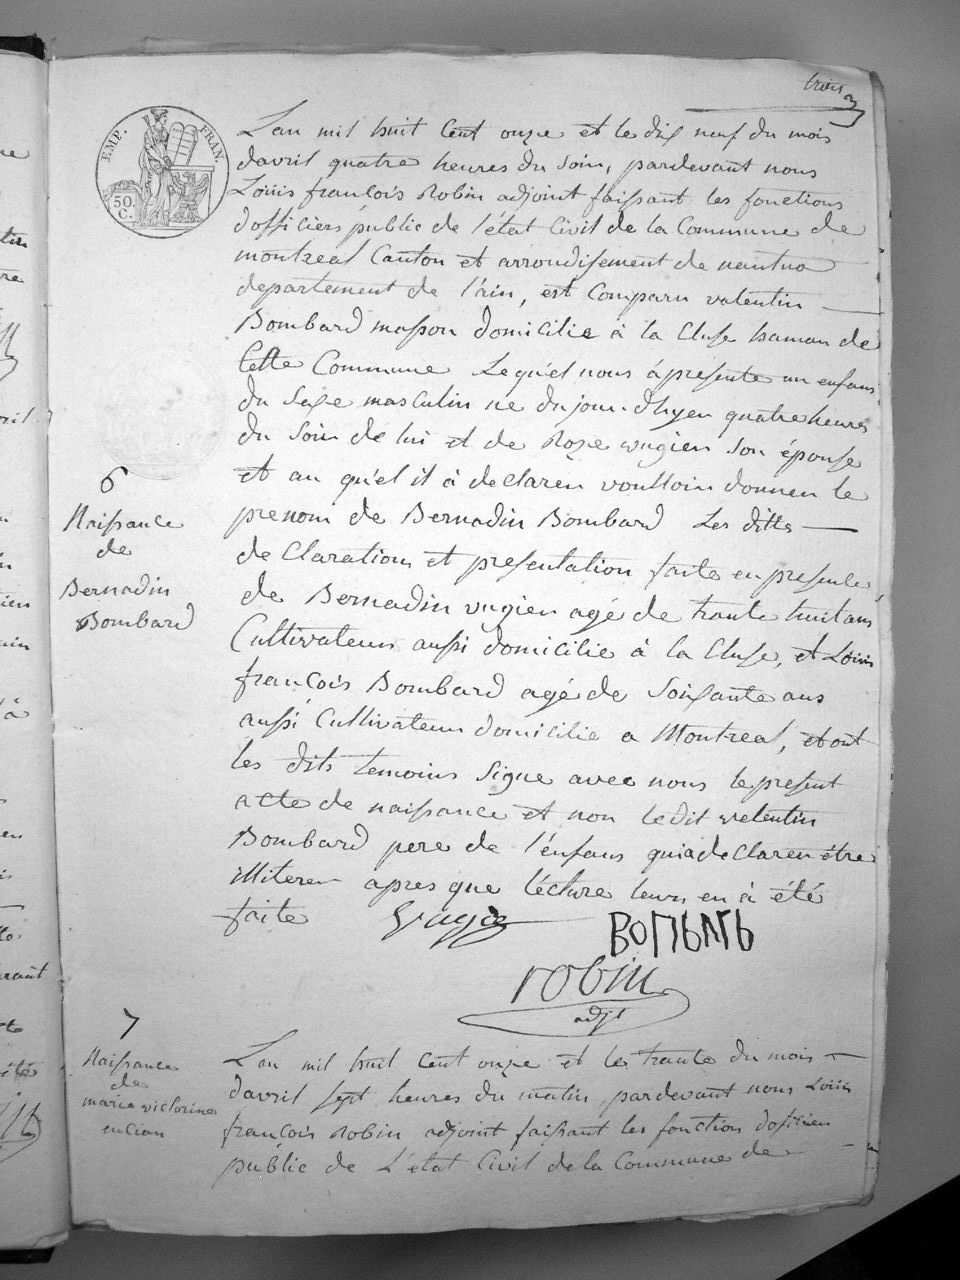 trois 3
EMP. FRAN.
50.
C.
Lan mil huit Cent onze et le dix neuf du mois
davril quatre heures du soir, pardevant nous
Louis françois Robin adjoint faissant les fonctions
dofficiers public de l'état Civil de la Commune de
montreal Canton et arrondisement de nantua
departement de l'ain, est Comparu valentin
Bombard masson domicilié à la Cluse hamau de
Cette Commune Lequ'el nous à présente un enfans
du Sexe masculin ne dujour d'hyer quatre heures
du Soir de lui et de Roze vugien Son épouse
et au qu'el il à declaren voulloin donner le
prenom de Bernadin Bombard Les dittes
declarations et presentation faite en presence
de Bernadin vugien agé de trante huit ans
Cultivateur aussi domicilié à la Cluse, et Louis
françois Bombard agé de Soixante ans
aussi Cultivateur domicilié a Montreal, et ont
les dits temoins Signe avec nous le present
acte de naissance et non ledit valentin
Bombard pere de l'enfans qui a declaren être
illiteren apres que lécture leurs en à été
faite
6
Naissance
de
Bernadin
Bombard
robin
adjt
7
Naissance
de
marie victorine
Lan mil huit Cent onze et le trante du mois
davril sept heures du matin, pardevant nous Louis
françois Robin adjoint faissant les fonction dofficien
public de L'état Civil de la Commune de